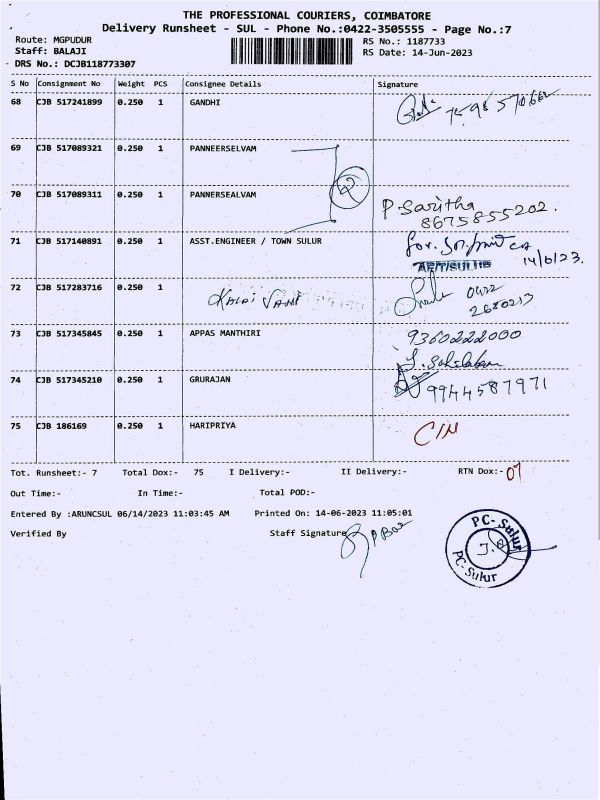 THE PROFESSIONAL COURIERS, COIMBATORE
Delivery Runsheet - SUL - Phone No.:0422-3505555 - Page No.:7
Route: MGPUDUR
Staff: BALAJI
DRS No.: DCJB118773307
RS No.: 1187733
RS Date: 14-Jun-2023
S No Consignment No Weight PCS Consignee Details Signature
68 CJB 517241899 0.250 1 GANDHI
69 CJB 517089321 0.250 1 PANNEERSELVAM
2
70 CJB 517089311 0.250 1 PANNERSEALVAM P. Saritha
8675855202.
71 CJB 517140891 0.250 1 ASST.ENGINEER / TOWN SULUR for.
14/6/23.
72 CJB 517283716 0.250 1 KALAI VANI 0422
73 CJB 517345845 0.250 1 APPAS MANTHIRI 9360222000
74 CJB 517345210 0.250 1 GRURAJAN 9944587971
75 CJB 186169 0.250 1 HARIPRIYA
Tot. Runsheet:- 7 Total Dox:- 75 I Delivery:- II Delivery:- RTN Dox:- 07
Out Time:- In Time:- Total POD:-
Entered By :ARUNCSUL 06/14/2023 11:03:45 AM Printed On: 14-06-2023 11:05:01
Verified By Staff Signature
PC- Sulur
PC-Sulur